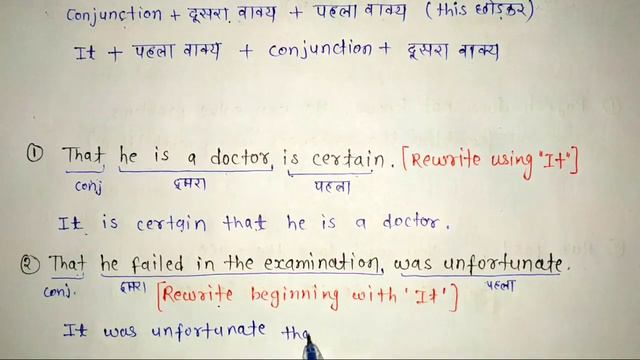 Conjunction + दूसरा वाक्य + पहला वाक्य (this छोड़कर)
It + पहला वाक्य + conjunction + दूसरा वाक्य
① That he is a doctor, is certain. [Rewrite using "It"]
conj दूसरा पहला
It is certain that he is a doctor.
② That he failed in the examination, was unfortunate.
conj. दूसरा [Rewrite beginning with 'It'] पहला
It was unfortunate tha